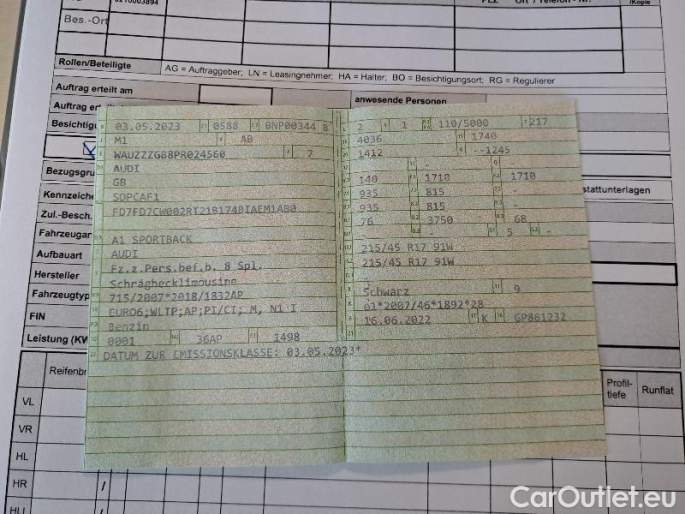 0210003894
PLZ
Ort / Telefon - Nr.
/Kopie
Bes.-Ort
Rollen/Beteiligte
AG = Auftraggeber; LN = Leasingnehmer; HA = Halter; BO = Besichtigungsort; RG = Regulierer
Auftrag erteilt am
anwesende Personen
Auftrag er
Besichtigu
Bezugsgru
Kennzeiche
stattunterlagen
Zul.-Besch.
Fahrzeugar
Aufbauart
Hersteller
Fahrzeugtyp
FIN
Leistung (KW
Reifenbr
Profil-
tiefe
Runflat
VL
VR
HL
HR
03.05.2023 0588
M1 AB
AUDI
GB
A1 SPORTBACK
AUDI
Fz.z.Pers.bef.b. 8 Spl.
Schräghecklimousine
715/2007*2018/1832AP
EURO6;WLTP;AP;PI/CI; M, N1 I
Benzin
0001 36AP 1498
DATUM ZUR EMISSIONSKLASSE: 03.05.2023*
2 1 110/5000 217
4036 1740
1412 --1245
140 1710 1710
935 815 -
935 815 -
76 3750 68
- - 5 -
215/45 R17 91W
215/45 R17 91W
Schwarz 9
e1*2007/46*1892*28
16.06.2022 K GP861232
CarOutlet.eu